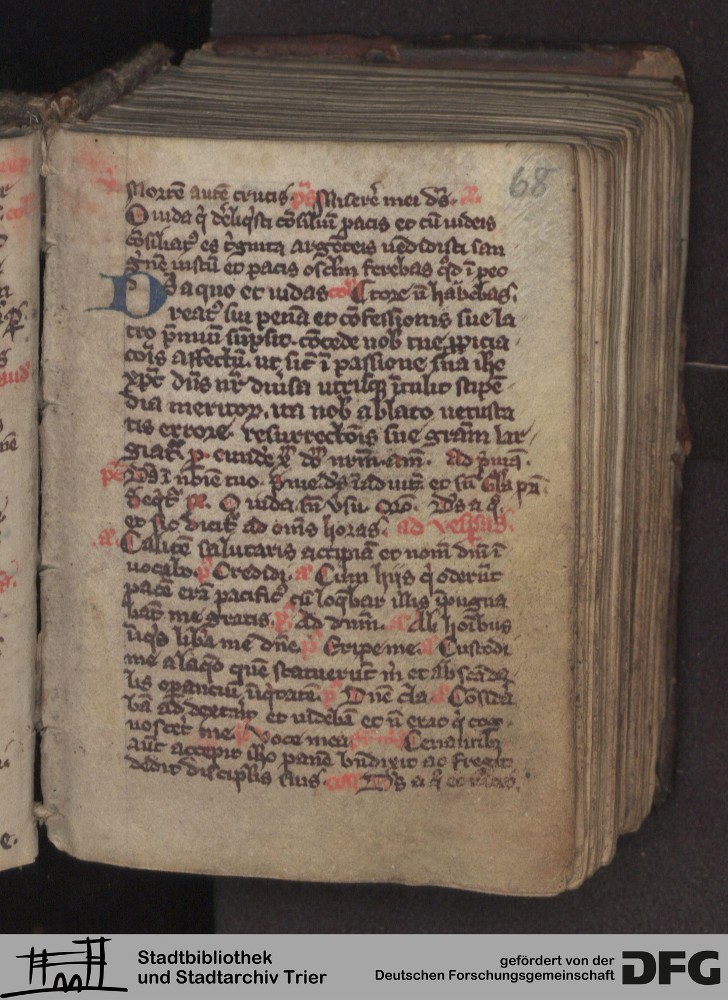 68
Mortē autē crucis. ps Miserē mei ds.
O iuda q̄ dereliq̄sti cōsiliū pacis et cū iudeis
cōsiliatꝰ es t̄ginta argēteis uēdidisti san
guinē iustū et pacis osclm̄ ferebas qd̄ ī pec
tore n̄ habebas.
Ds a quo et iudas
reatꝰ sui penā et cōfessionis sue la
tro p̄miū sūpsit. cōcede nob tue ꝓpicia
cōis affectū. ut sic̄ ī passione sua ihc
xpc dn̄s nr̄ diuisa utrisq̄ ītulit stipē
dia meritoꝝ. ita nob ablato uetusta
tis errore. resurrectōis sue gram̄ lar
giatr̄. p. eundē
Ds ī noīe tuo.
et sic dicitr̄ ad om̄s horas. ad vesp̄as.
Calicem salutaris accipiā et nomē dn̄i ī
uocabo. p̄ Credidi. a Cum hiis q̄ oderūt
pacē erā pacificꝰ cū loq̄bar illis īpugna
bāt me gratis. p̄ Ad dn̄m. a Ab hoībus
īiq̄s libera me dn̄e. p̄ Eripe me. a Custodi
me a laq̄o quē statuerūt m̄ et ab scādał
lis opantiū īiq̄tatē. p̄ Dn̄e cla a Cōside
rabā ad dextrā et uidebā et n̄ erat q̄ cog
nosceret me. p̄ Voce mea Cenantibꝫ
aūt accepit ihc panē bn̄dixit ac fregit
dedit discipłis suis. coll Ds a q̄ et
Stadtbibliothek
und Stadtarchiv Trier
gefördert von der
Deutschen Forschungsgemeinschaft
DFG